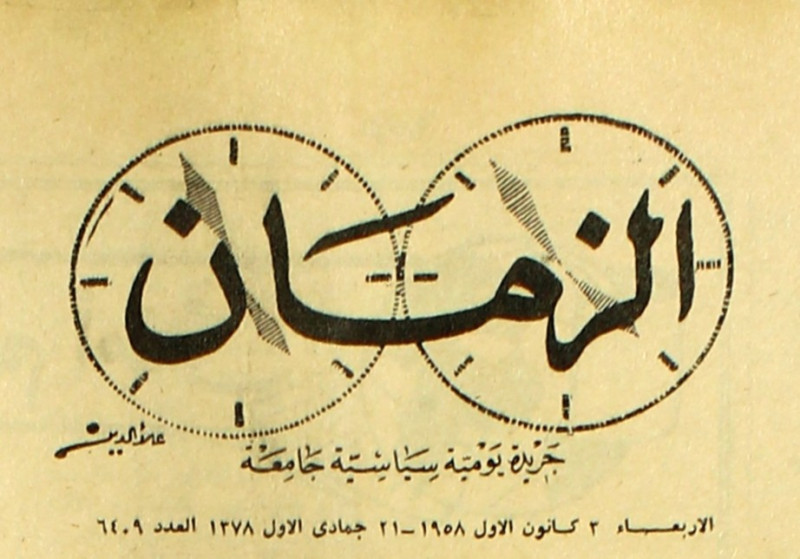 الزمان
علاءالدين
جَريدة يَوْمية سِيَاسِيّة جَامِعَة
الاربعـــاء ٣ كانون الاول ١٩٥٨ – ٢١ جمادى الاول ١٣٧٨ العدد ٦٤٠٩